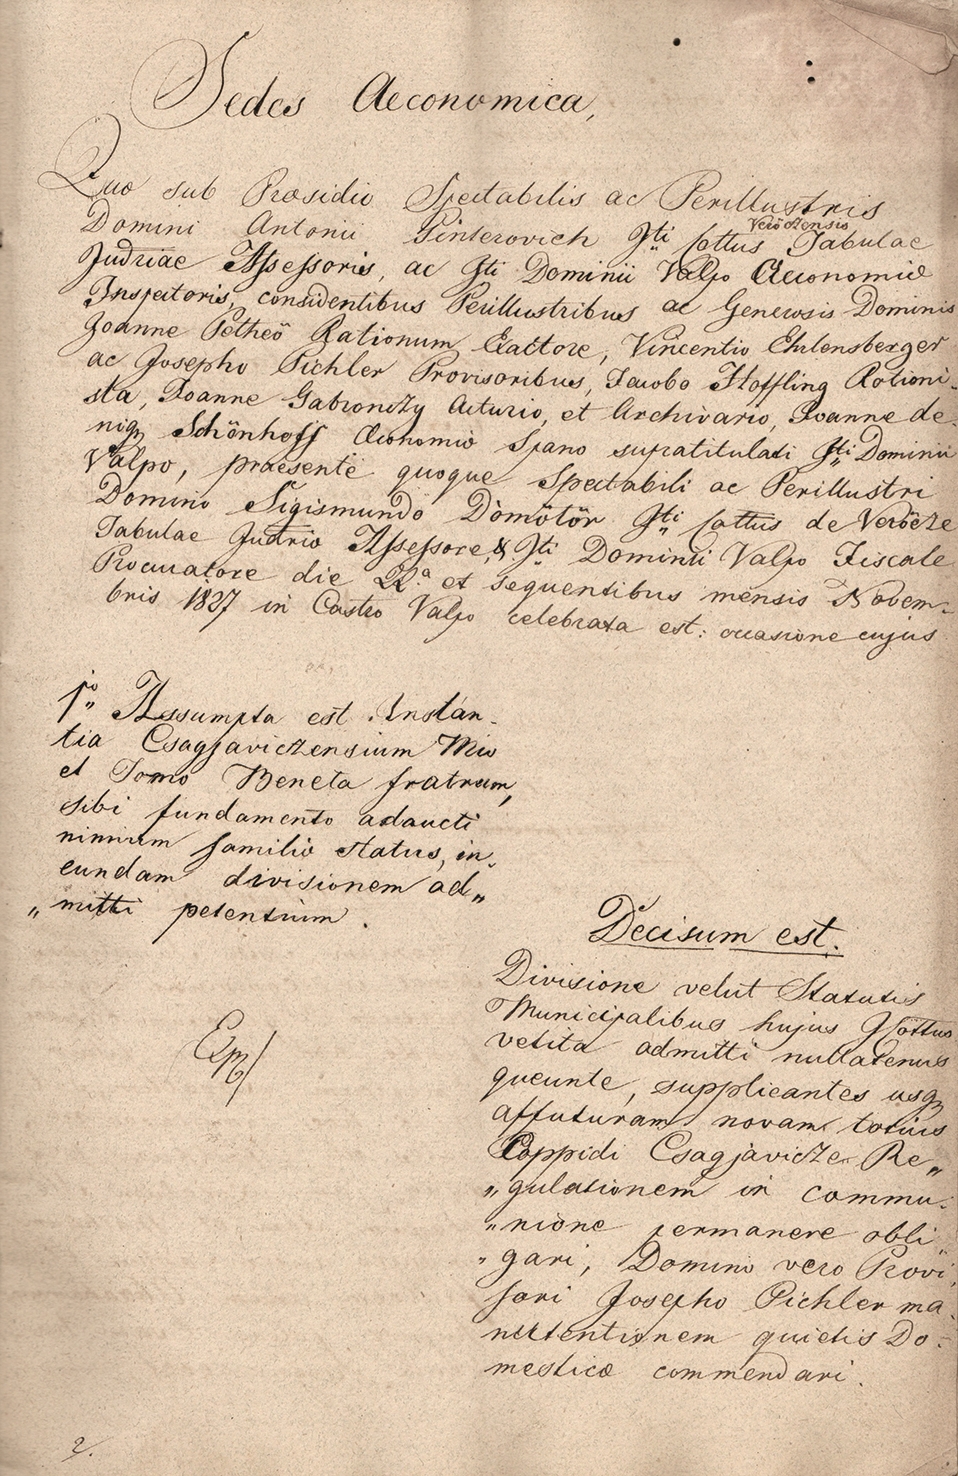 Sedes Aeconomica,
Quae sub Praesidio Spectabilis ac Perillustris
Domini Antonii Pinterovich Iti Cottus Veröczensis Tabulae
Judriae Assessoris, ac Iti Dominii Valpo Aeconomiae
Inspectoris, considentibus Perillustribus ac Generosis Dominis
Joanne Petheö Rationum Exactore, Vincentio Ehlensberger
ac Josepho Pichler Provisoribus, Jacobo Hoffling Rationi-
sta, Joanne Gabronczy Actuario, et Archivario, Joanne de-
niq Schönhoff Oeconomiae Spano supratitulati Iti Dominii
Valpo, praesente quoque Spectabili ac Perillustri
Domino Sigismundo Dömötör Iti Cottus de Verőcze
Tabulae Judriae Assessore, & Iti Dominii Valpo Fiscale
Procuratore die 22a et sequentibus mensis Novem-
bris 1827 in Castro Valpo celebrata est: occasione cujus
1mo Assumpta est Instan-
tia Csagjaviczensium Mio
et Tomo Beneta fratrum,
sibi fundamento adaucti
nimium familiae status, in-
eundam divisionem ad„
„mitti petentium.
Decisum est.
Divisione velut Statutis
Municipalibus hujus I Cottus
vetita admitti nullatenus
queunte, supplicantes usq
affuturam novam totius
Oppidi Csagjavicze Re„
„gulationem in commu-
„nione permanere obli„
„gari, Domino vero Provi-
sori Josepho Pichler ma-
nutentionem quietis Do-
mesticae commendari.
2.